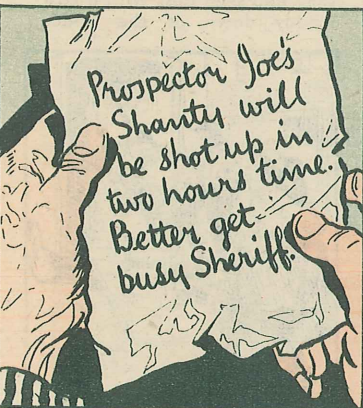 Prospector Joe's
Shanty will
be shot up in
two hours time.
Better get
busy Sheriff.